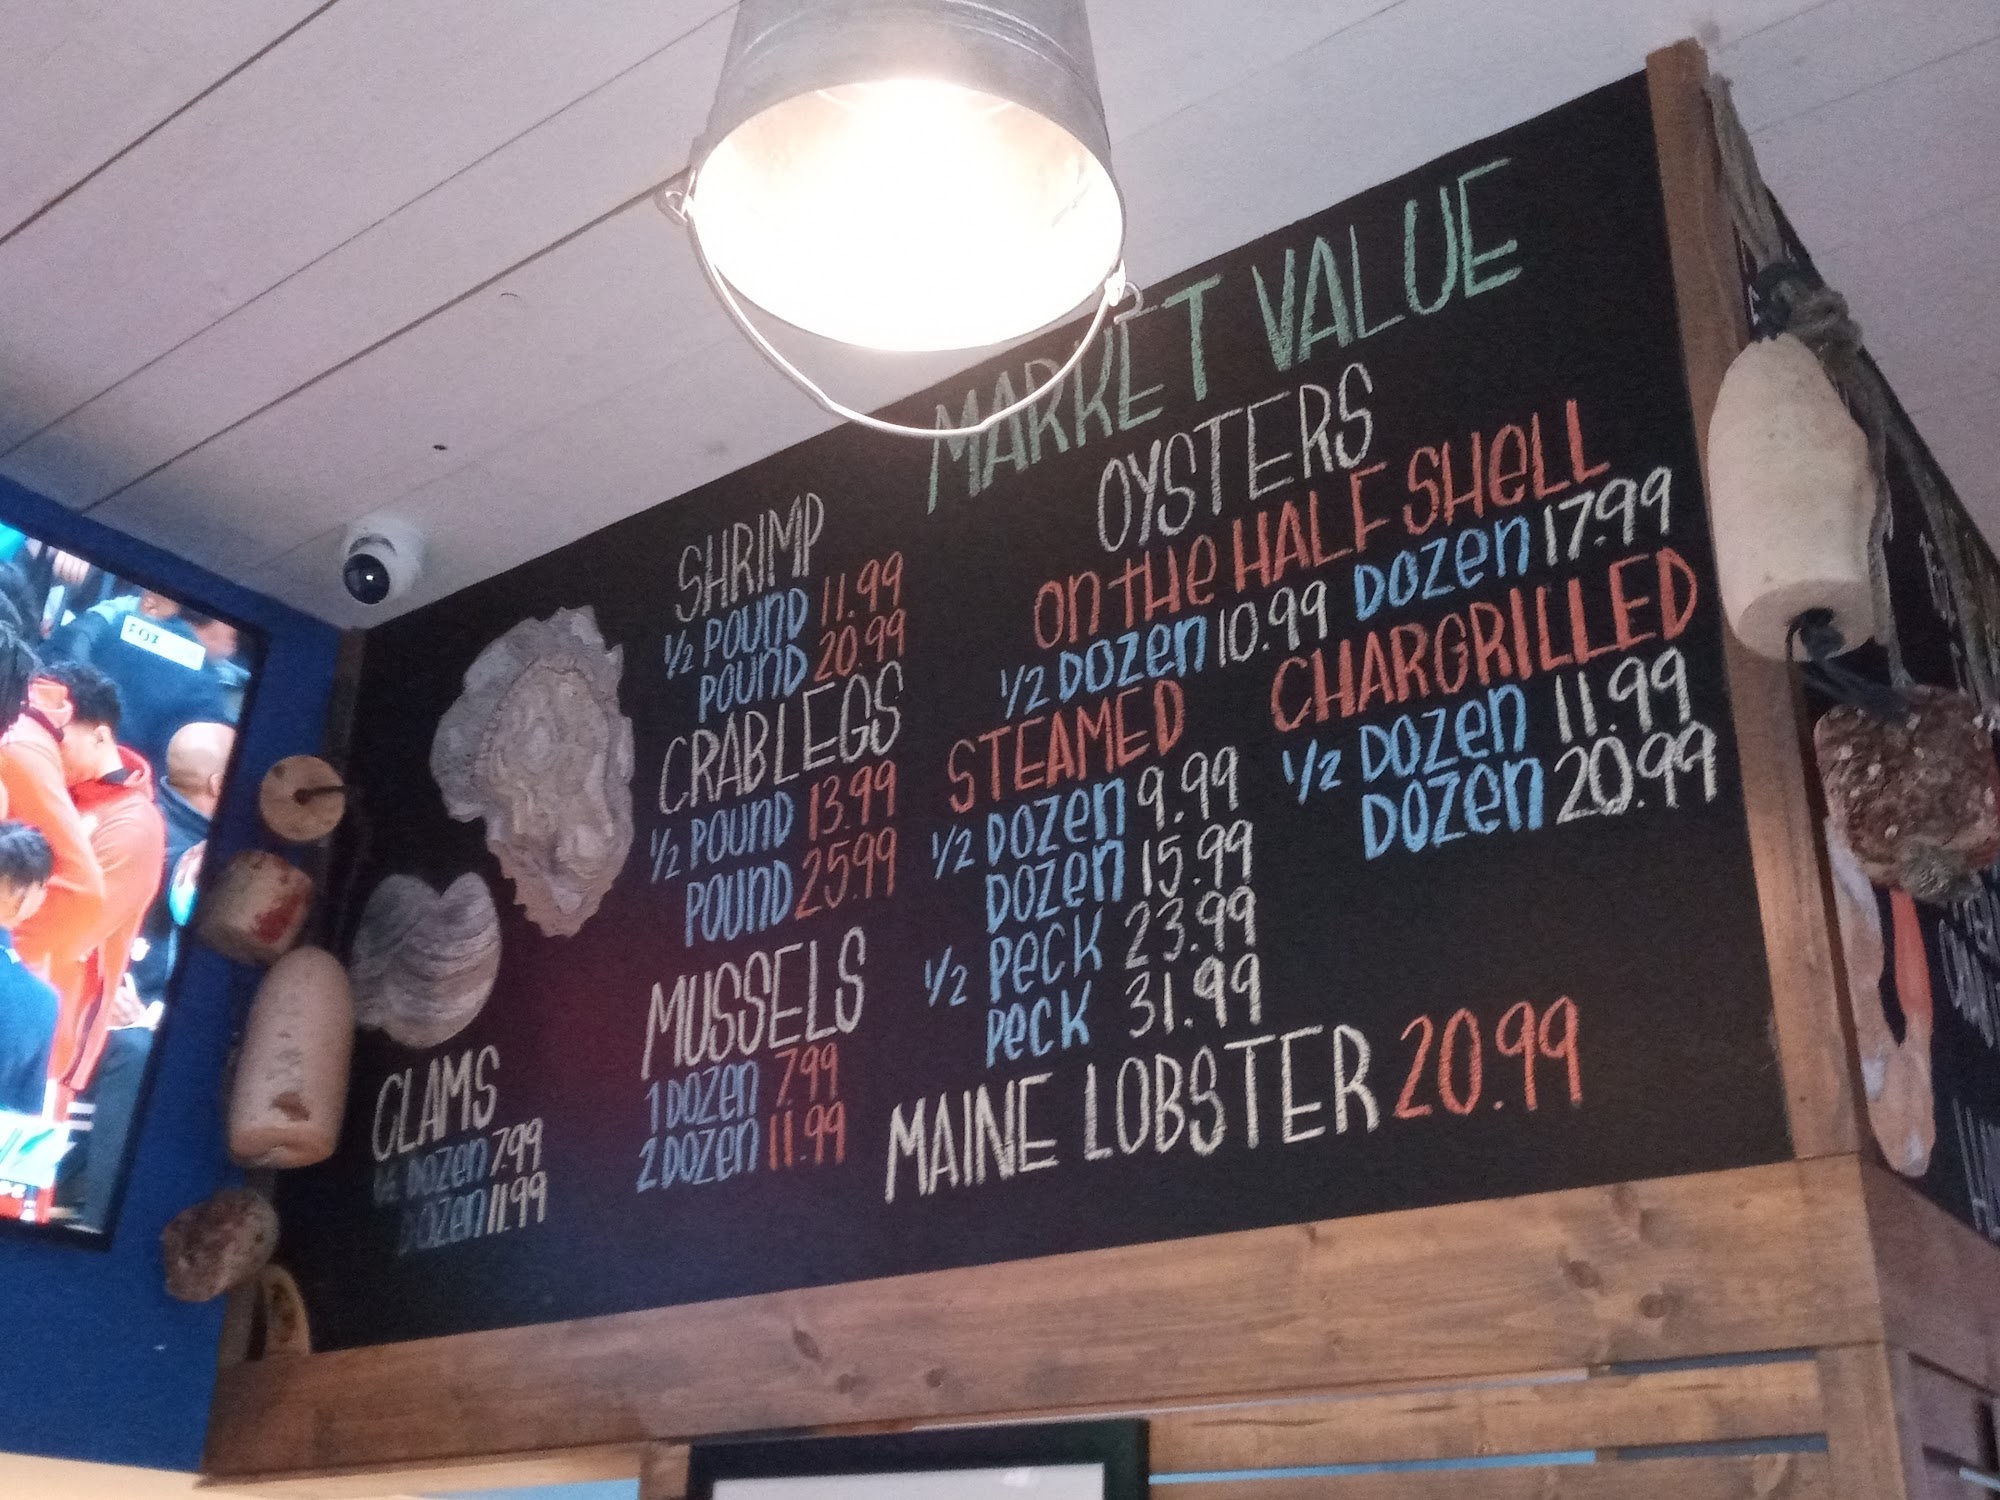 MARKET VALUE
SHRIMP
1/2 POUND 11.99
POUND 20.99
CRAB LEGS
1/2 POUND 13.99
POUND 25.99
MUSSELS
1 DOZEN 7.99
2 DOZEN 11.99
CLAMS
1/2 DOZEN 7.99
DOZEN 11.99
OYSTERS
ON THE HALF SHELL
1/2 DOZEN 10.99 DOZEN 17.99
STEAMED
1/2 DOZEN 9.99
DOZEN 15.99
1/2 PECK 23.99
PECK 31.99
CHARGRILLED
1/2 DOZEN 11.99
DOZEN 20.99
MAINE LOBSTER 20.99